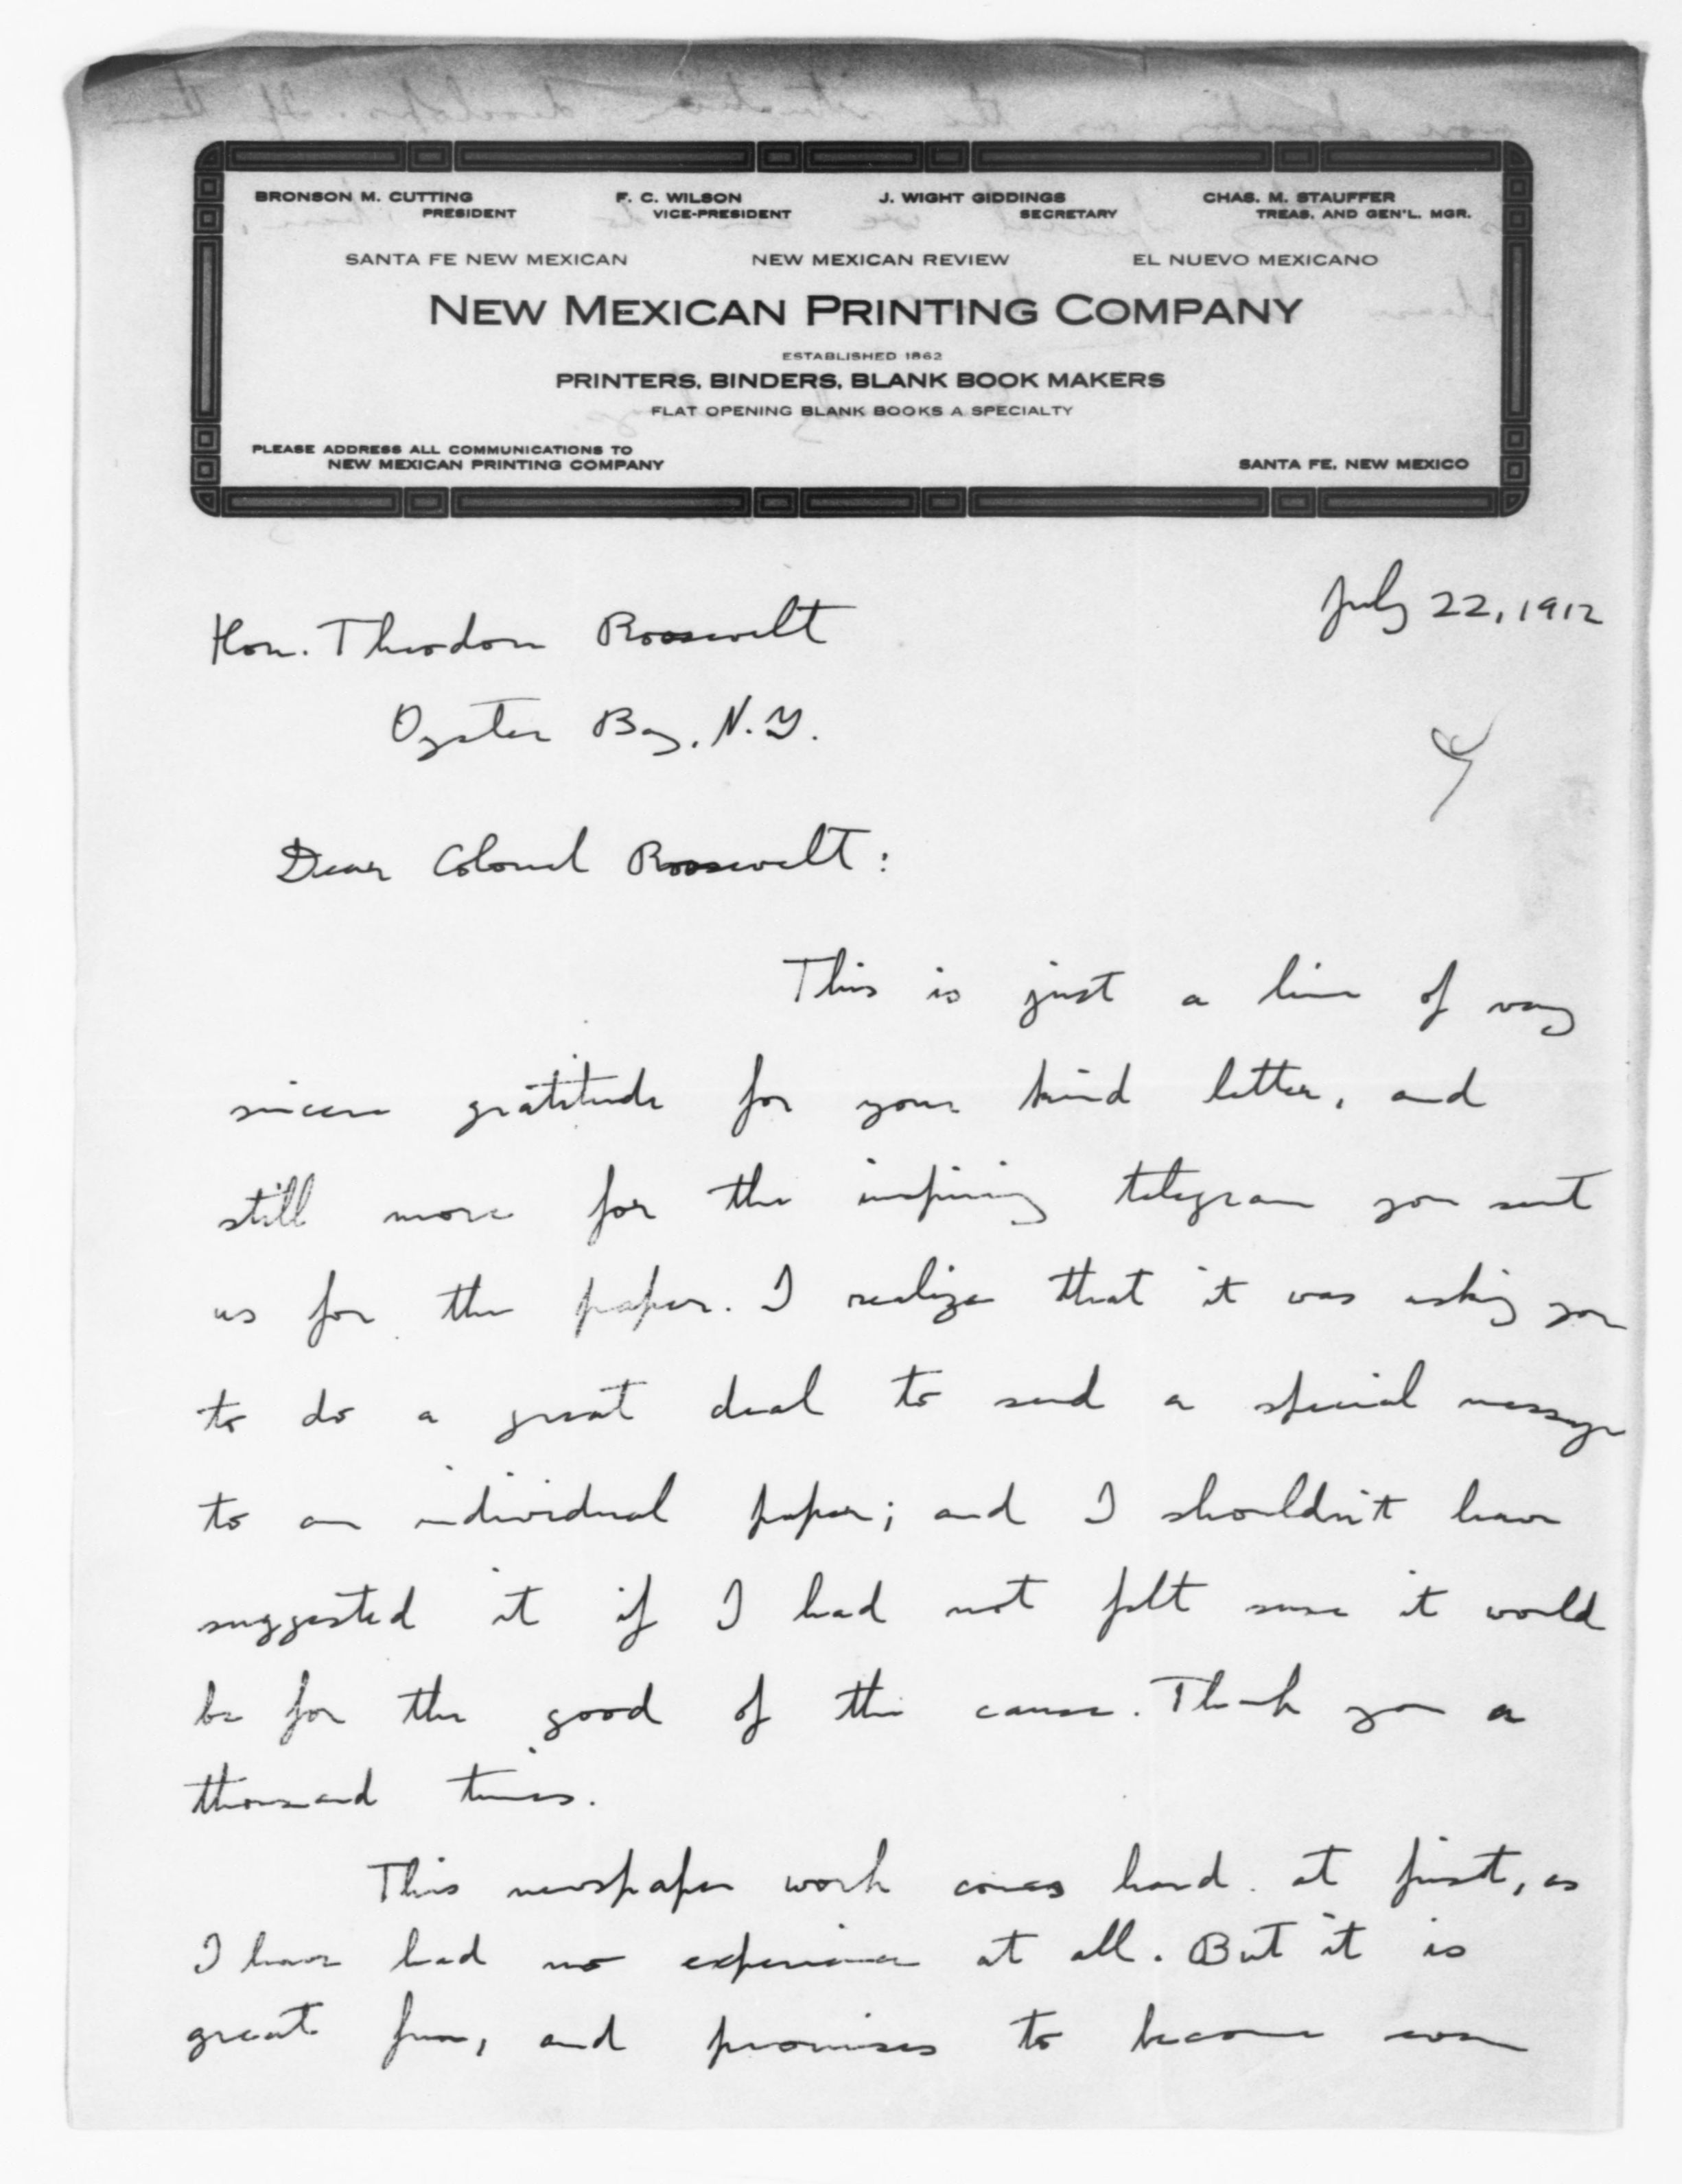 BRONSON M. CUTTING PRESIDENT F. C. WILSON VICE-PRESIDENT J. WIGHT GIDDINGS SECRETARY CHAS. M. STAUFFER TREAS. AND GEN'L. MGR.
SANTA FE NEW MEXICAN NEW MEXICAN REVIEW EL NUEVO MEXICANO
NEW MEXICAN PRINTING COMPANY
ESTABLISHED 1862
PRINTERS, BINDERS, BLANK BOOK MAKERS
FLAT OPENING BLANK BOOKS A SPECIALTY
PLEASE ADDRESS ALL COMMUNICATIONS TO
NEW MEXICAN PRINTING COMPANY SANTA FE, NEW MEXICO
July 22, 1912
Hon. Theodore Roosevelt
Oyster Bay, N.Y.
Dear Colonel Roosevelt:
This is just a line of very
sincere gratitude for your kind letter, and
still more for the inspiring telegram you sent
us for the paper. I realize that it was asking you
to do a great deal to send a special message
to an individual paper; and I shouldn't have
suggested it if I had not felt sure it would
be for the good of the cause. Thank you a
thousand times.
This newspaper work comes hard at first, as
I have had no experience at all. But it is
great fun, and promises to become even